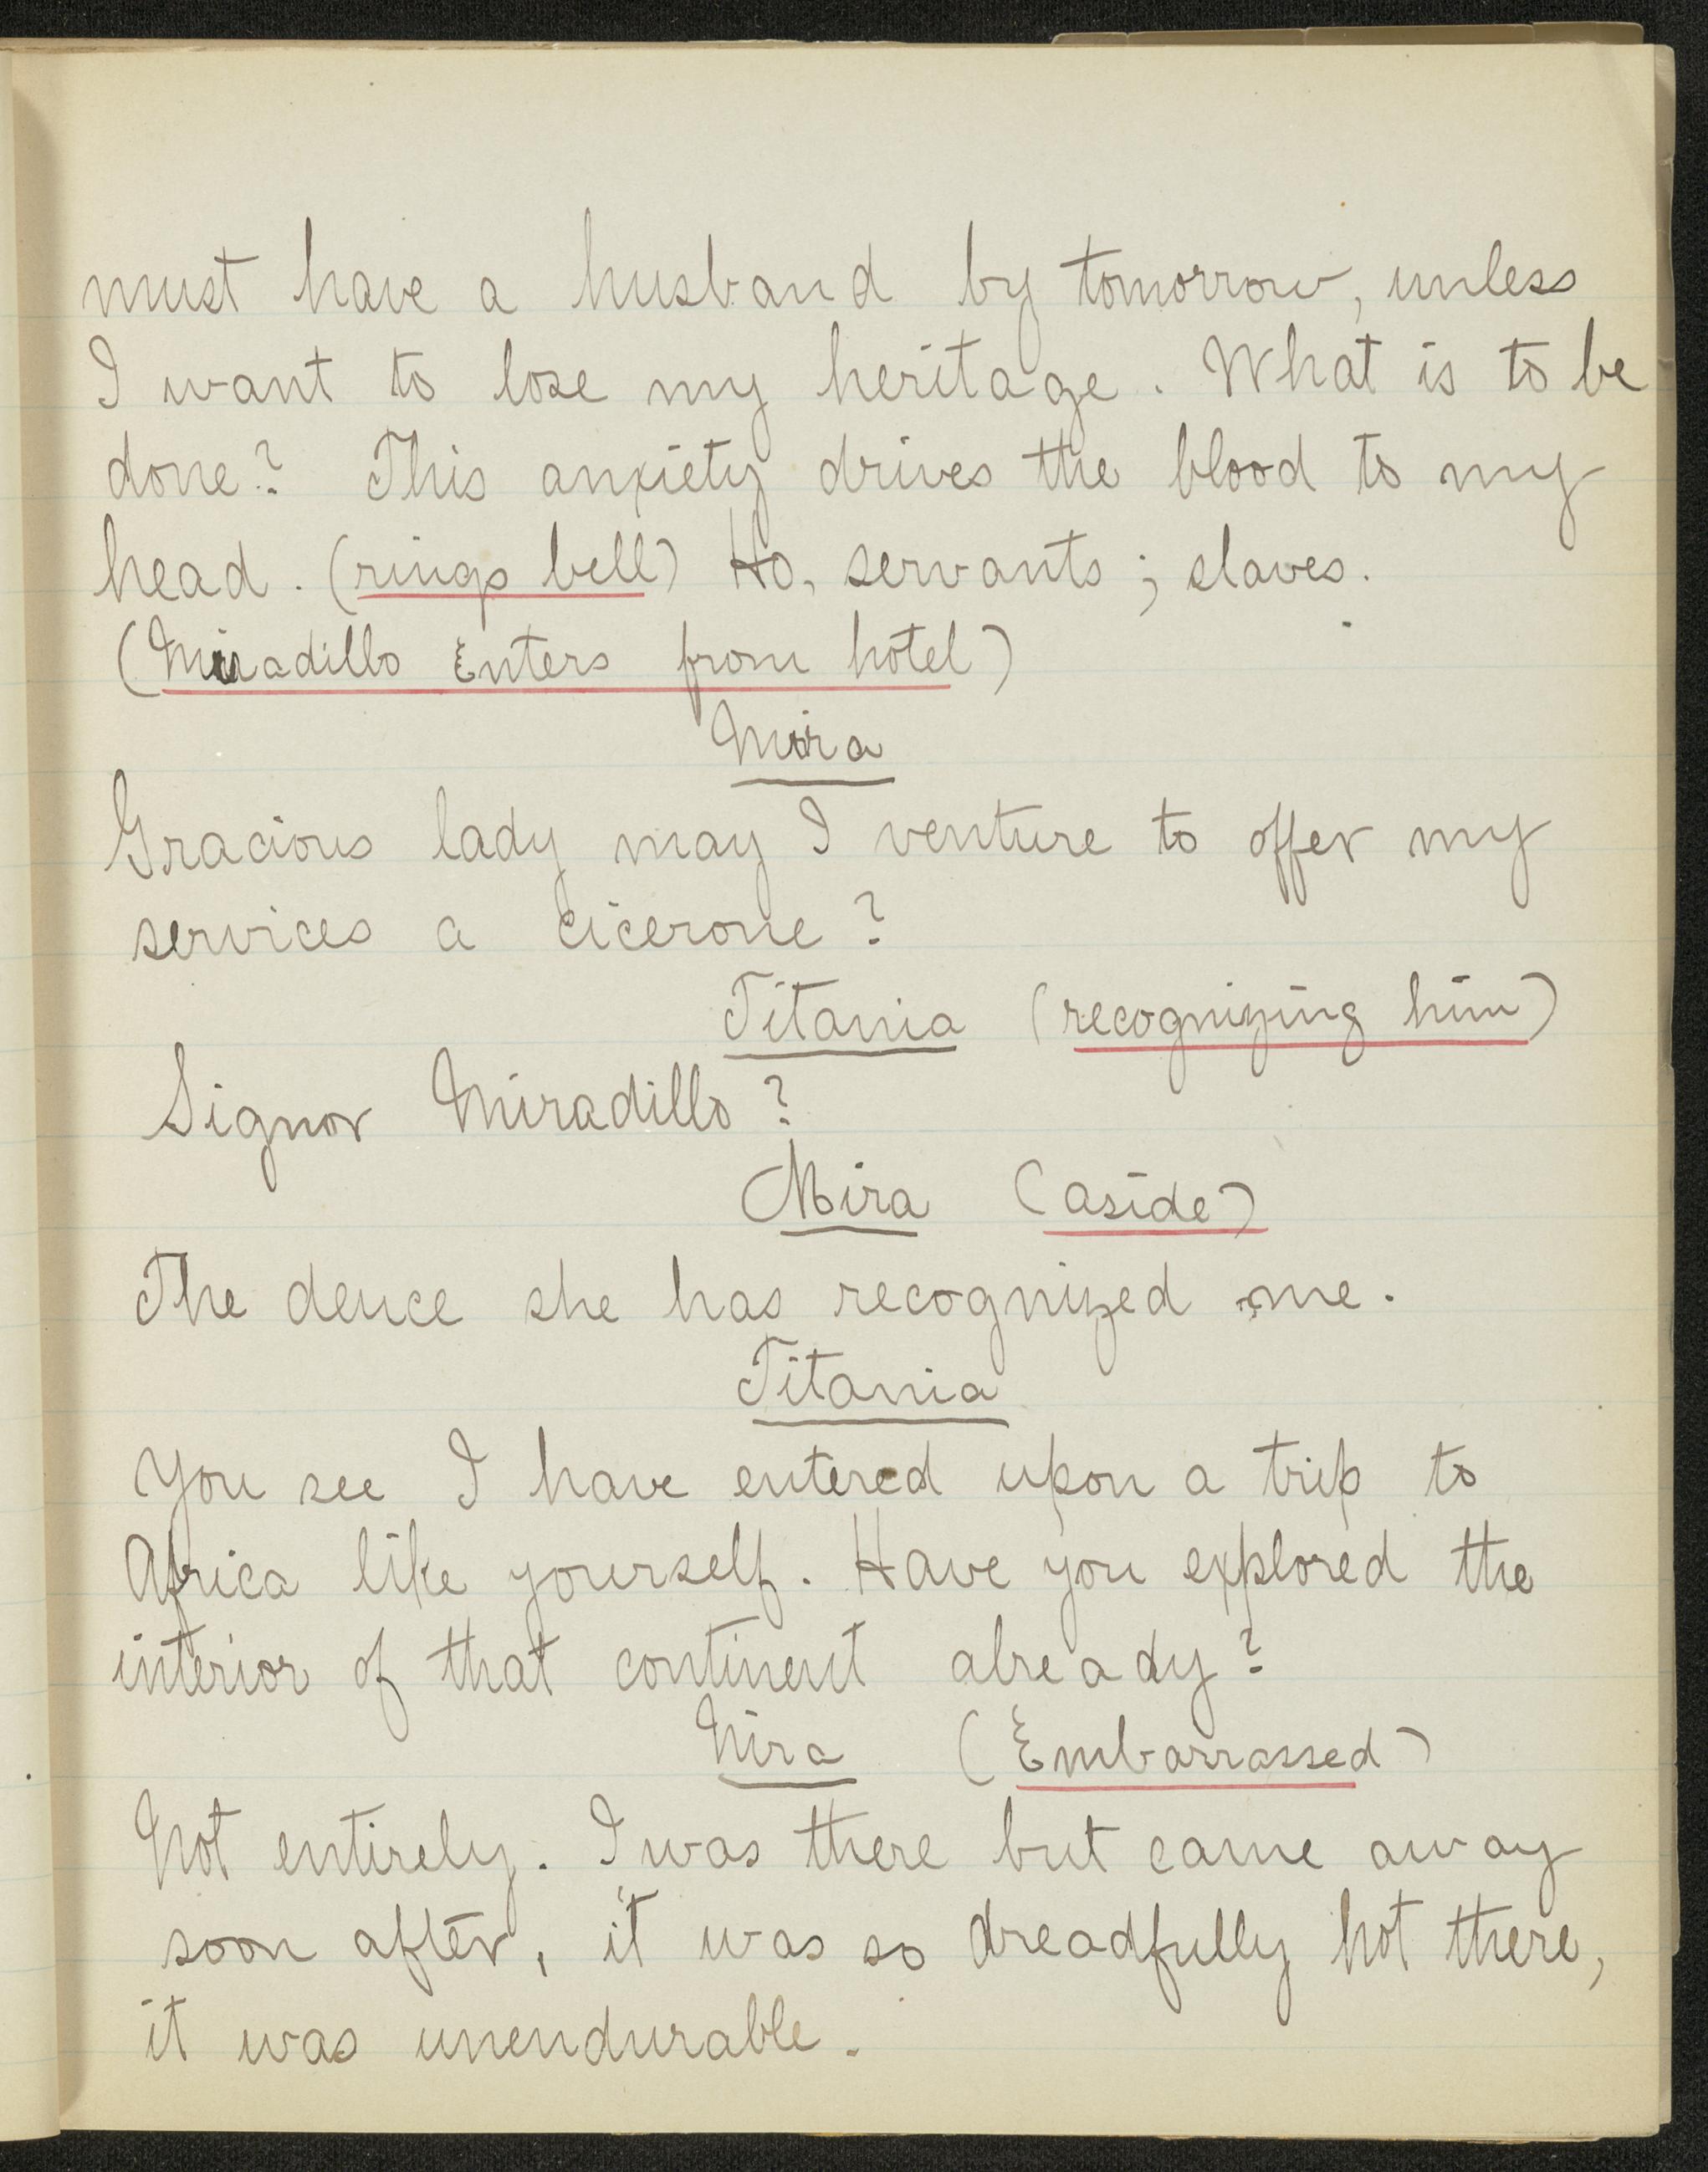 must have a husband by tomorrow, unless
I want to lose my heritage. What is to be
done? This anxiety drives the blood to my
head. (rings bell) Ho, servants; slaves.
(Miradillo Enters from hotel)
Mira
Gracious lady may I venture to offer my
services a cicerone?
Titania (recognizing him)
Signor Miradillo?
Mira (aside)
The deuce she has recognized me.
Titania
You see I have entered upon a trip to
Africa like yourself. Have you explored the
interior of that continent already?
Mira (Embarrassed)
Not entirely. I was there but came away
soon after, it was so dreadfully hot there,
it was unendurable.